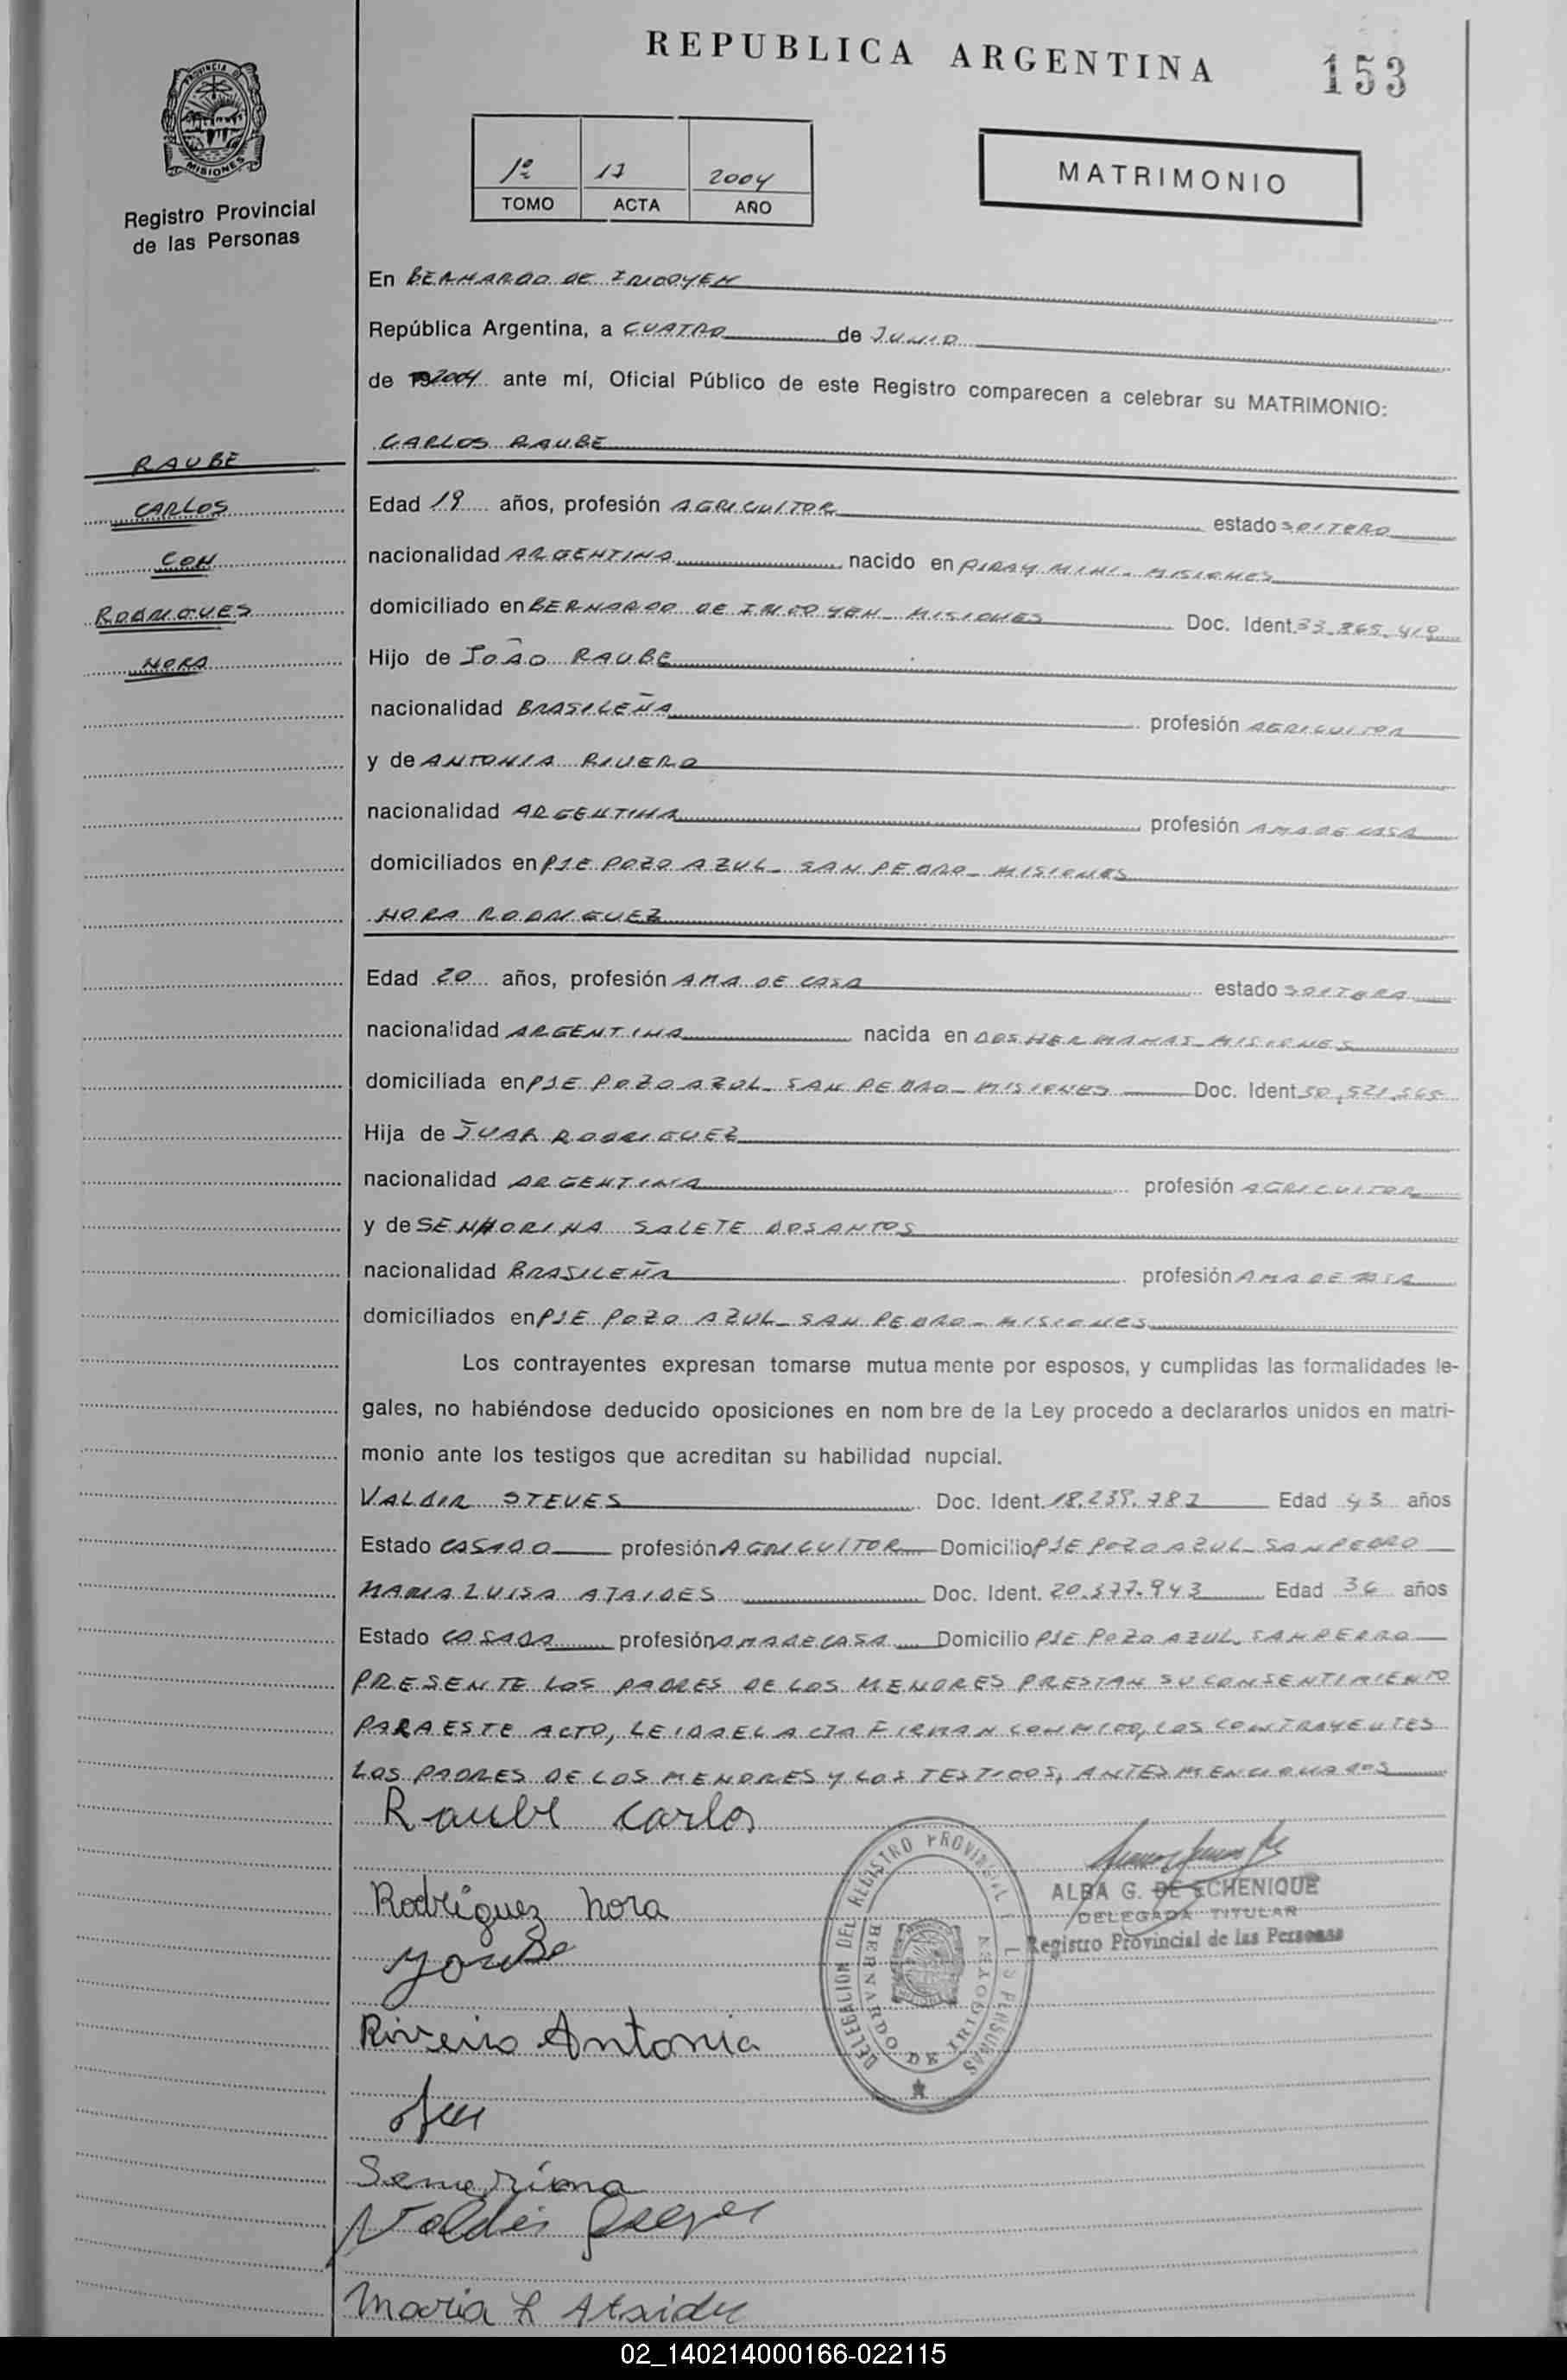 REPUBLICA ARGENTINA
153
PROVINCIA DE
MISIONES
Registro Provincial
de las Personas
1º 17 2004
TOMO ACTA AÑO
MATRIMONIO
En BERNARDO DE IRIGOYEN
República Argentina, a CUATRO de JUNIO
de 2004 ante mí, Oficial Público de este Registro comparecen a celebrar su MATRIMONIO:
CARLOS RAUBE
RAUBE
CARLOS
CON
RODRIGUES
NORA
Edad 19 años, profesión AGRICULTOR estado SOLTERO
nacionalidad ARGENTINA nacido en PIRAY MINI - MISIONES
domiciliado en BERNARDO DE IRIGOYEN - MISIONES Doc. Ident. 33.865.419
Hijo de JOÃO RAUBE
nacionalidad BRASILEÑA profesión AGRICULTOR
y de ANTONIA RIVERO
nacionalidad ARGENTINA profesión AMA DE CASA
domiciliados en PJE POZO AZUL - SAN PEDRO - MISIONES
NORA RODRIGUEZ
Edad 20 años, profesión AMA DE CASA estado SOLTERA
nacionalidad ARGENTINA nacida en DOS HERMANAS - MISIONES
domiciliada en PJE POZO AZUL - SAN PEDRO - MISIONES Doc. Ident.
Hija de JUAN RODRIGUEZ
nacionalidad ARGENTINA profesión AGRICULTOR
y de SENHORINA SALETE DOSANTOS
nacionalidad BRASILEÑA profesión AMA DE CASA
domiciliados en PJE POZO AZUL - SAN PEDRO - MISIONES
Los contrayentes expresan tomarse mutua mente por esposos, y cumplidas las formalidades le-
gales, no habiéndose deducido oposiciones en nom bre de la Ley procedo a declararlos unidos en matri-
monio ante los testigos que acreditan su habilidad nupcial.
VALDIR STEVES Doc. Ident. 18.239.782 Edad 43 años
Estado CASADO profesión AGRICULTOR Domicilio PJE POZO AZUL - SAN PEDRO
MARIA LUISA ATAIDES Doc. Ident. 20.377.943 Edad 36 años
Estado CASADA profesión AMA DE CASA Domicilio PJE POZO AZUL. SAN PEDRO
PRESENTE LOS PADRES DE LOS MENORES PRESTAN SU CONSENTIMIENTO
PARA ESTE ACTO, LEIDA EL ACTA FIRMAN CONMIGO, LOS CONTRAYENTES
LOS PADRES DE LOS MENORES Y LOS TESTIGOS, ANTES MENCIONADOS
Raube Carlos
Rodríguez nora
Riveiro Antonia
DELEGACION DEL REGISTRO PROVINCIAL DE LAS PERSONAS
BERNARDO DE IRIGOYEN
ALBA G. DE ECHENIQUE
DELEGADA TITULAR
Registro Provincial de las Personas
Maria L Ataide
02_140214000166-022115